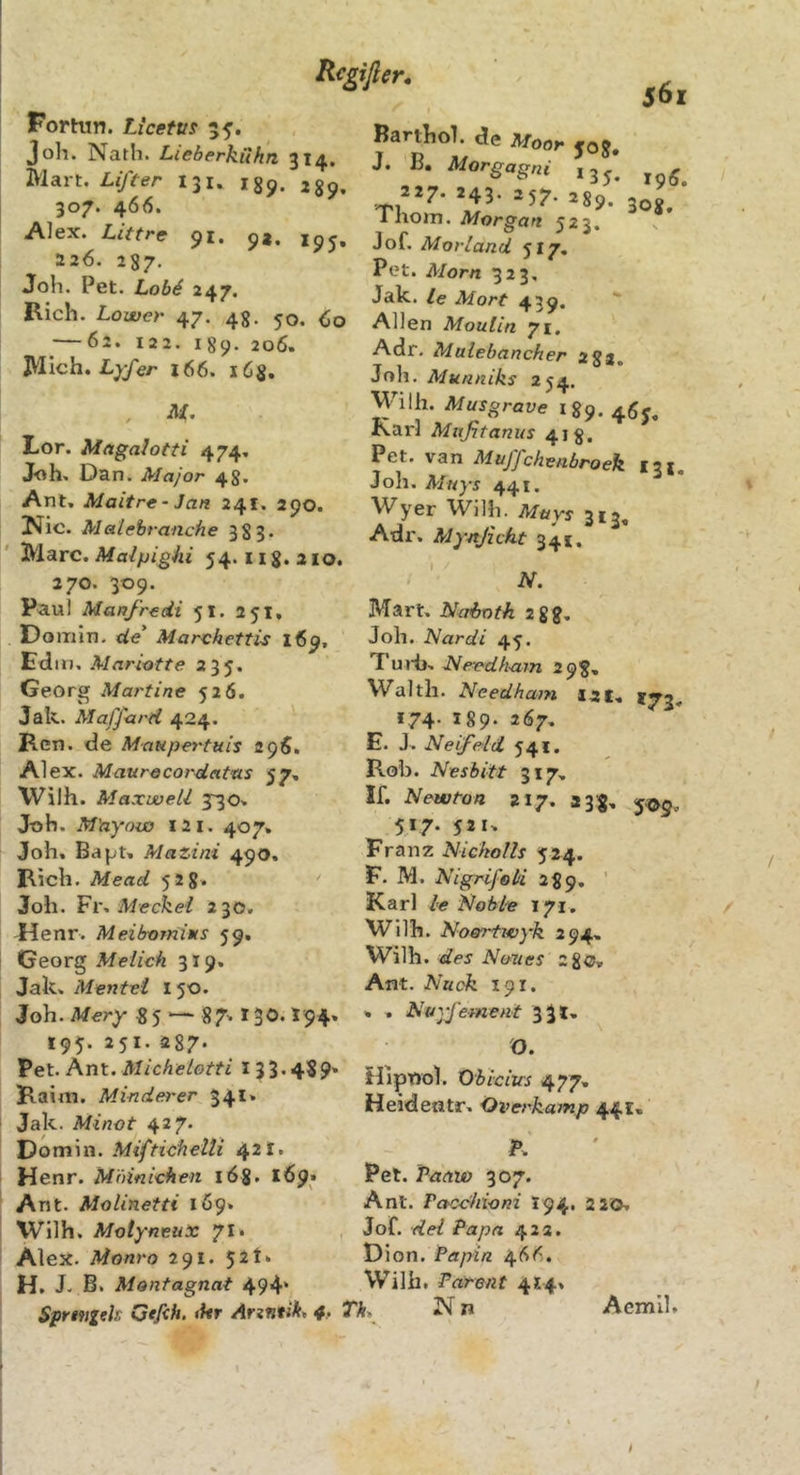 Regiſter.
561
Fortun. Licetus 35.
Joh. Nath. Lieberkühn 314.
Mart. Liſter 131. 189. 289.
307. 466.
Alex. Littre 91. 92. 195.
226. 287.
Joh. Pet. Lobé 247.
Rich. Lower 47. 48. 50. 60
— 62. 122. 189. 206.
Mich. Lyſer 166. 168.
M.
Lor. Magalotti 474.
Joh. Dan. Major 48.
Ant. Maitre-Jan 241. 290.
Nic. Malebranche 383.
Marc. Malpighi 54. 118. 210.
270. 309.
Paul Manfredi 51. 251.
Domin. de' Marchettis 169.
Edm. Mariotte 235.
Georg Martine 526.
Jak. Maſſard 424.
Ren. de Maupertuis 296.
Alex. Maurocordatus 57.
Wilh. Maxwell 330.
Joh. Mayow 121. 407.
Joh. Bapt. Mazini 490.
Rich. Mead 528.
Joh. Fr. Meckel 230.
Henr. Meibomius 59.
Georg Melich 319.
Jak. Mentel 150.
Joh. Mery 85 — 87. 130. 194.
195. 251. 287.
Pet. Ant. Michelotti 133. 489.
Raim. Minderer 341.
Jak. Minot 427.
Domin. Miſtichelli 421.
Henr. Möinichen 168. 169.
Ant. Molinetti 169.
Wilh. Molyneux 71.
Alex. Monro 291. 521.
H. J. B. Montagnat 494.
Barthol. de Moor 508.
J. B. Morgagni 135. 196.
227. 243. 257. 289. 308.
Thom. Morgan 523.
Joſ. Morland 517.
Pet. Morn 323.
Jak. le Mort 439.
Allen Moulin 71.
Adr. Mulebancher 282.
Joh. Munniks 254.
Wilh. Musgrave 189. 465.
Karl Muſitanus 418.
Pet. van Muſſchenbroek 131.
Joh. Muys 441.
Wyer Wilh. Muys 313.
Adr. Mynſicht 341.
N.
Mart. Naboth 288.
Joh. Nardi 45.
Turb. Needham 298.
Walth. Needham 121. 173.
174. 189. 267.
E. J. Neifeld 541.
Rob. Nesbitt 317.
If. Newton 217. 238. 509.
517. 521.
Franz Nicholls 524.
F. M. Nigriſoli 289.
Karl le Noble 171.
Wilh. Noortwyk 294.
Wilh. des Noues 280.
Ant. Nuck 191.
. . Nuyſement 331.
O.
Hippol. Obicius 477.
Heidentr. Overkamp 441.
P.
Pet. Paaw 307.
Ant. Pacchioni 194. 220.
Joſ. del Papa 422.
Dion. Papin 466.
Wilh. Parent 414.
Sprengels Geſch. der Arzneik. 4. Th.
N n
Aemil.